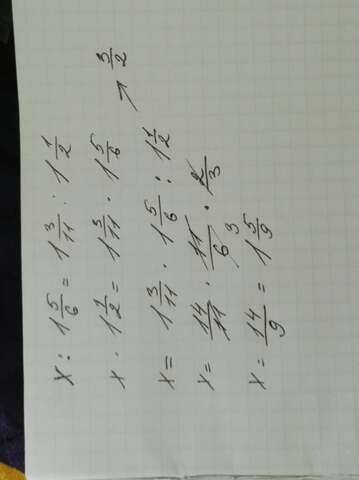 x : 1 5/6 = 1 3/11 : 1 1/2
x · 1 1/2 = 1 3/11 · 1 5/6
x = 1 3/11 · 1 5/6 : 1 1/2 → 3/2
x = 14/11 · 11/6 3 · 2/3
x = 14/9 = 1 5/9